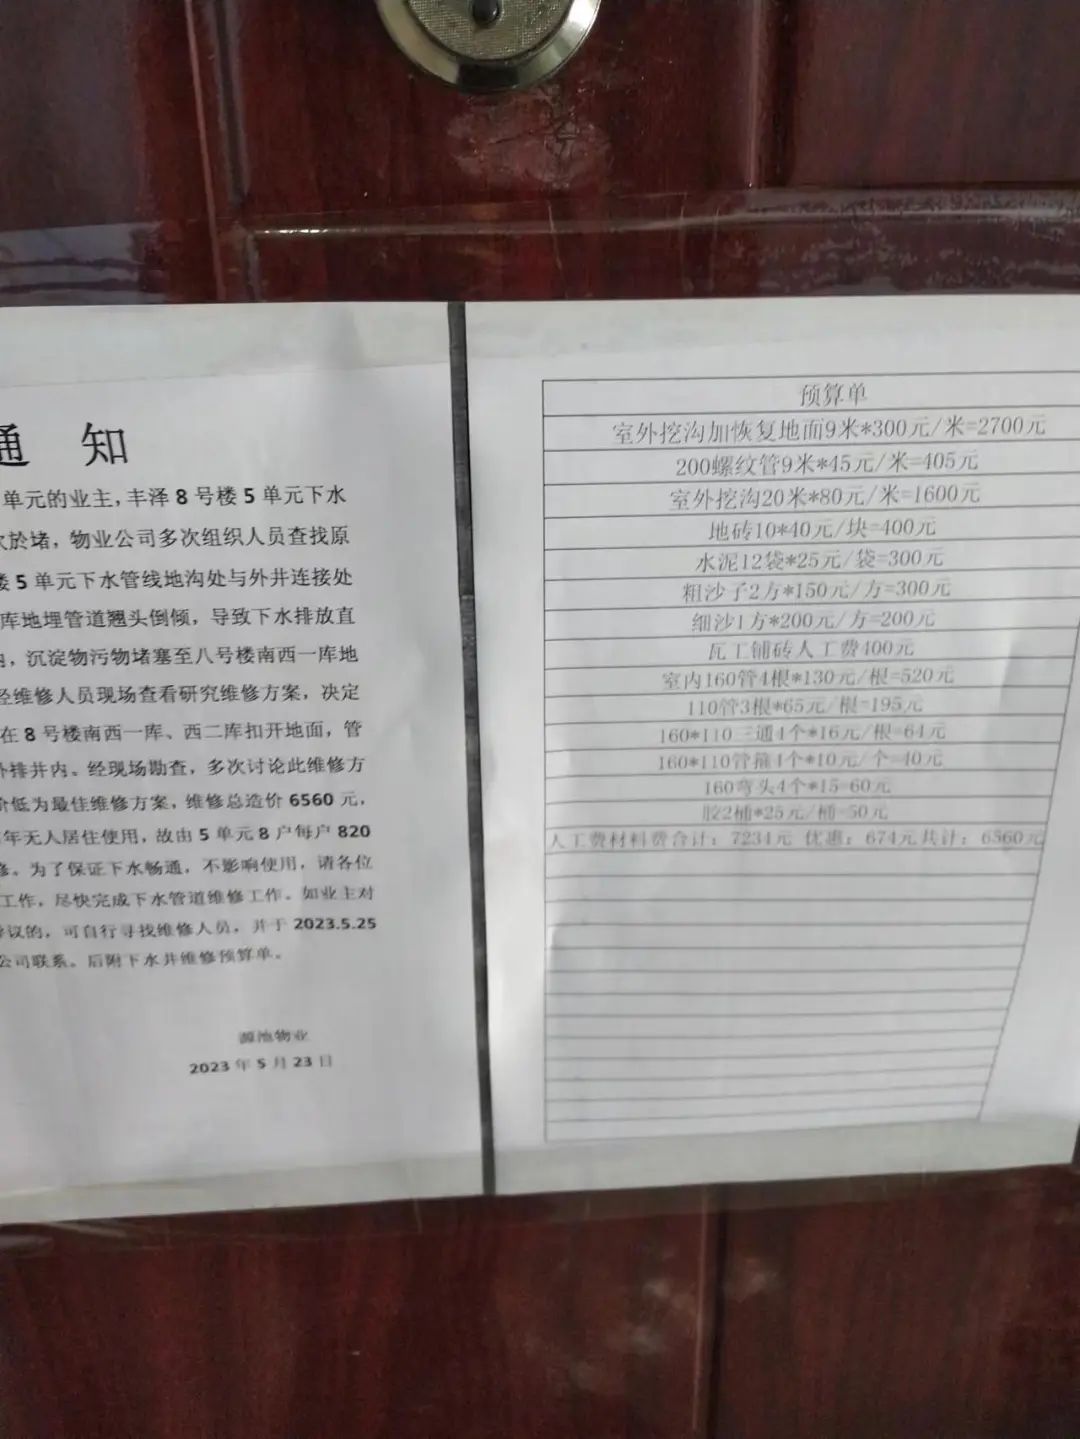 通 知
单元的业主，丰泽 8 号楼 5 单元下水
次於堵，物业公司多次组织人员查找原
楼 5 单元下水管线地沟处与外井连接处
库地埋管道翘头倒倾，导致下水排放直
内，沉淀物污物堵塞至八号楼南西一库地
经维修人员现场查看研究维修方案，决定
在 8 号楼南西一库、西二库扣开地面，管
外排井内。经现场勘查，多次讨论此维修方
价低为最佳维修方案，维修总造价 6560 元，
年无人居住使用，故由 5 单元 8 户每户 820
修。为了保证下水畅通，不影响使用，请各位
工作，尽快完成下水管道维修工作。如业主对
异议的，可自行寻找维修人员，并于 2023.5.25
公司联系。后附下水井维修预算单。
源池物业
2023 年 5 月 23 日
预算单
室外挖沟加恢复地面9米*300元/米=2700元
200螺纹管9米*45元/米=405元
室外挖沟20米*80元/米=1600元
地砖10*40元/块=400元
水泥12袋*25元/袋=300元
粗沙子2方*150元/方=300元
细沙1方*200元/方=200元
瓦工铺砖人工费400元
室内160管4根*130元/根=520元
110管3根*65元/根=195元
160*110三通4个*16元/根=64元
160*110管箍4个*10元/个=40元
160弯头4个*15=60元
胶2桶*25元/桶=50元
人工费材料费合计：7234元 优惠：674元共计：6560元